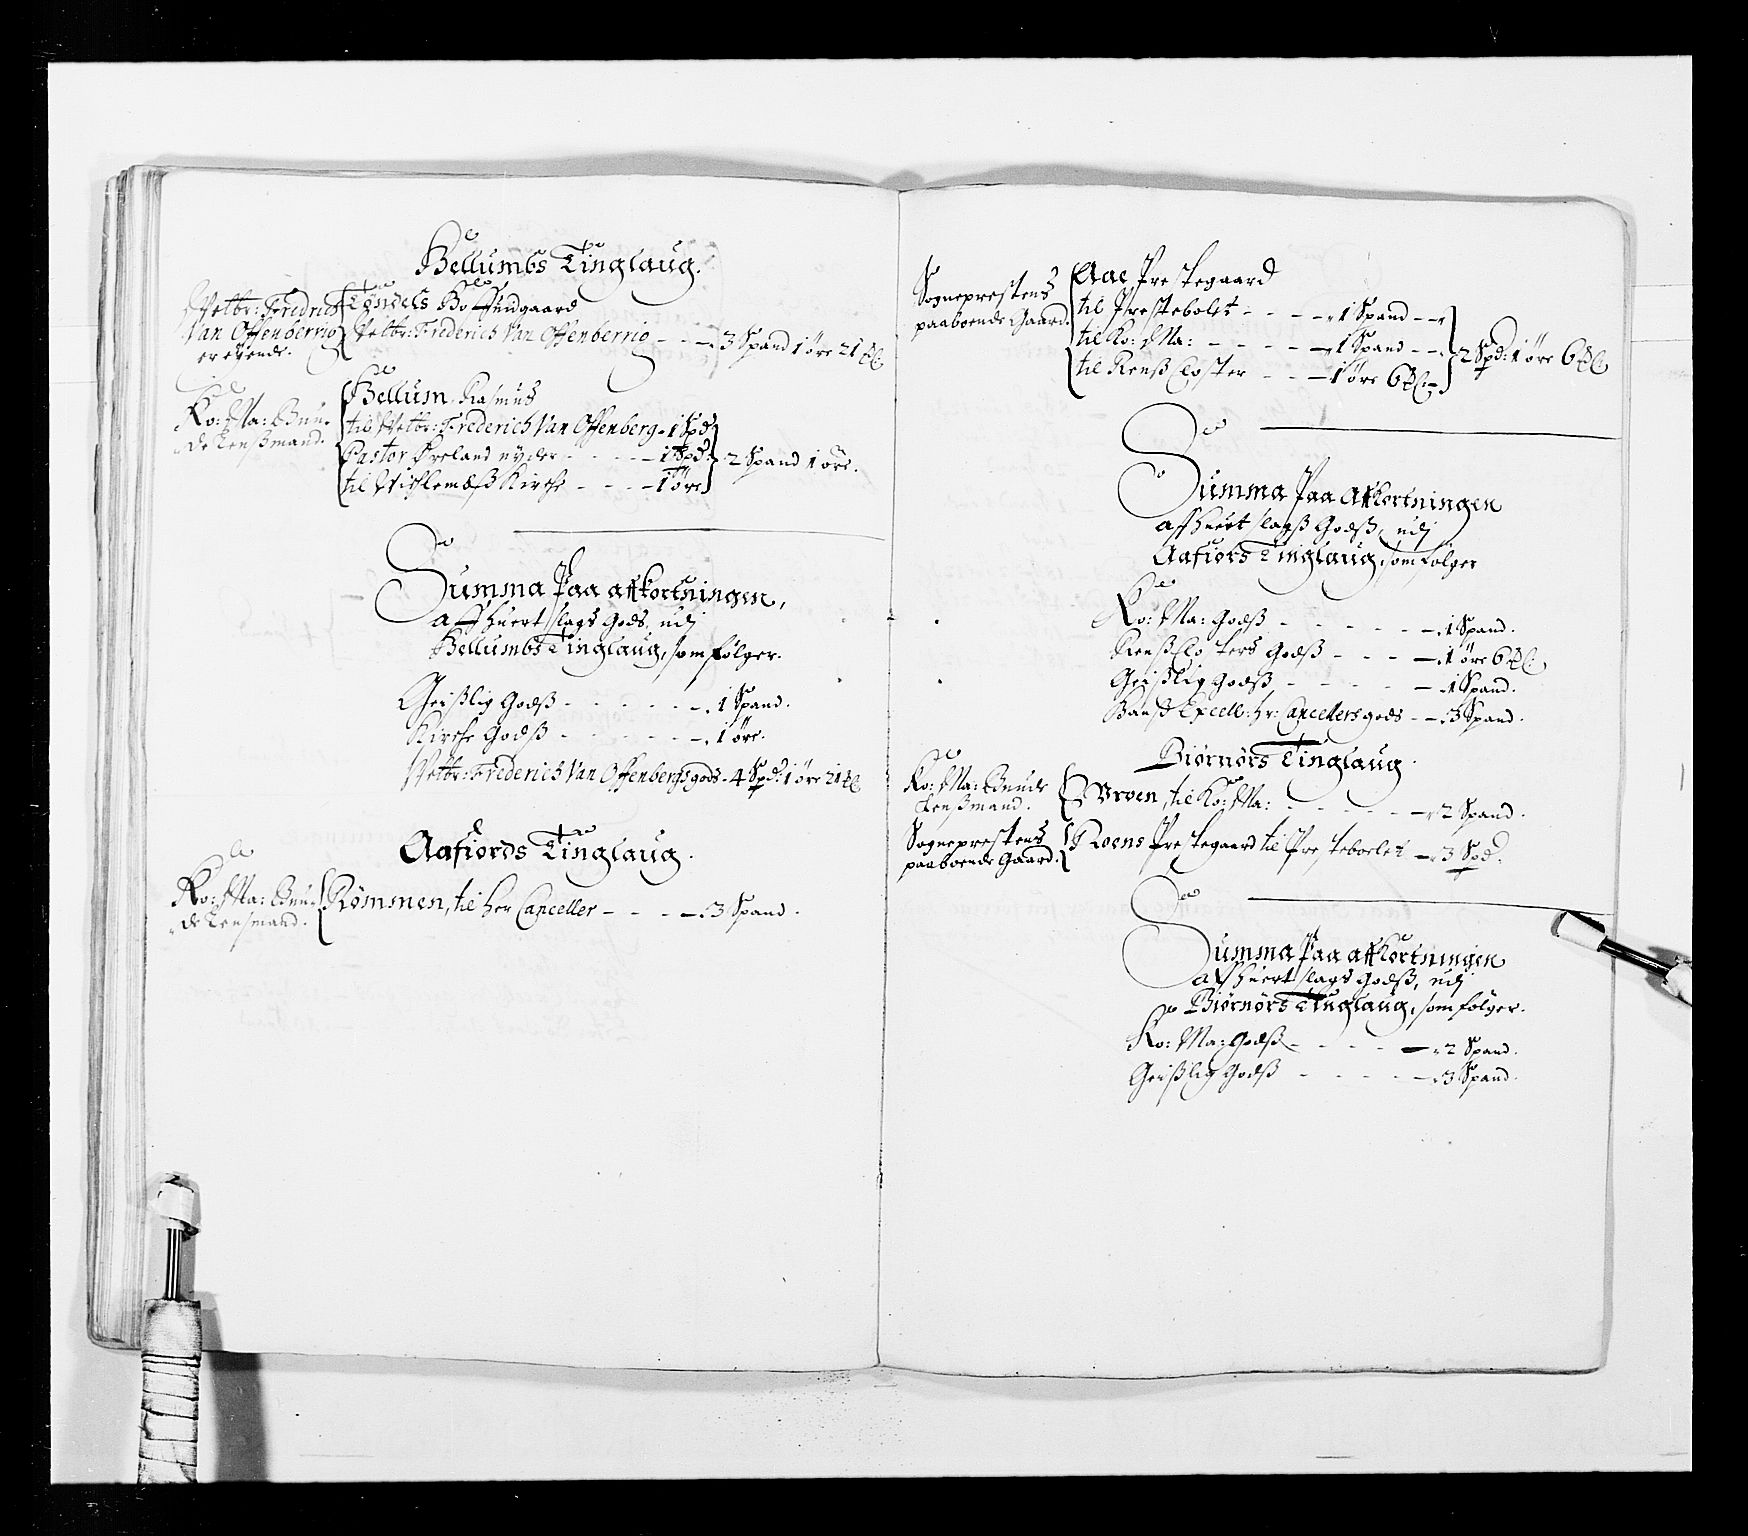 Bellumbs Tinglaug.
Velbr: Fredrich
Van Offenberrig
ereyende.
Tøndels Boe Huudgaard
Velbr: Frederich Van Offenberrig - - - 3 Spand 1 øre 21 ℔l:
Ko: Ma: Bun-
de Lenßmand.
Bellum Rasmus
til Velbr: Frederich Van Offenberg - 1 Spd
Pastor Øreland nyder - - - - 1 Spd:
til Viklemæß Kirche - - - - 1 øre
2 Spand 1 øre.
Summa Paa affkortningen,
aff huert slags Gods, udj
Bellumbs Tinglaug, som følger.
Geißlig Godß - - - - - 1 Spand.
Kirche Godß - - - - - 1 øre.
Velbr: Frederich Van Offenbergs gods - 4 Spd: 1 øre 21 ℔l:
Aafiords Tinglaug.
Ko: Ma: Bun-
de Lensmand.
Rømmen, til her Canceller - - - - 3 Spand.
Sogneprestens
paaboende Gaard.
Aae Prestegaard
til Prestebolet - - - - 1 Spand - -
til Ko: Ma: - - - - 1 Spand - -
til Renß Closter - - - 1 øre 6 ℔l: -
2 Spd: 1 øre 6 ℔l:
Summa Paa Afkortningen
aff huert slagß Godß, udj
Aafiors Tinglaug, som følger
Ko: Ma: Godß - - - - - - 1 Spand.
Renß Closters Godß - - - - 1 øre 6 ℔l:
Geißlig Godß - - - - - 1 Spand.
Hanß Excell: Hr: Cancellers gods - - 3 Spand.
Biørnørs Tinglaug.
Ko: Ma: Bunde
Lenßmand.
Broen, til Ko: Ma: - - - - - 2 Spand.
Sogneprestens
paaboende Gaard.
Roens Prestegaard til Presteboelet - 3 Spd:
Summa Paa afkortningen
aff huert slags Godß, udj
Biørnørs Tinglaug, som følger.
Ko: Ma: Godß - - - - - 2 Spand.
Geißlig Godß - - - - - 3 Spand.